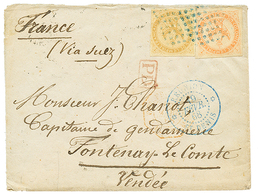 France
(Via Suez)
Monsieur J. Chanot
Capitaine de gendarmerie
Fontenay Le Comte
Vendée